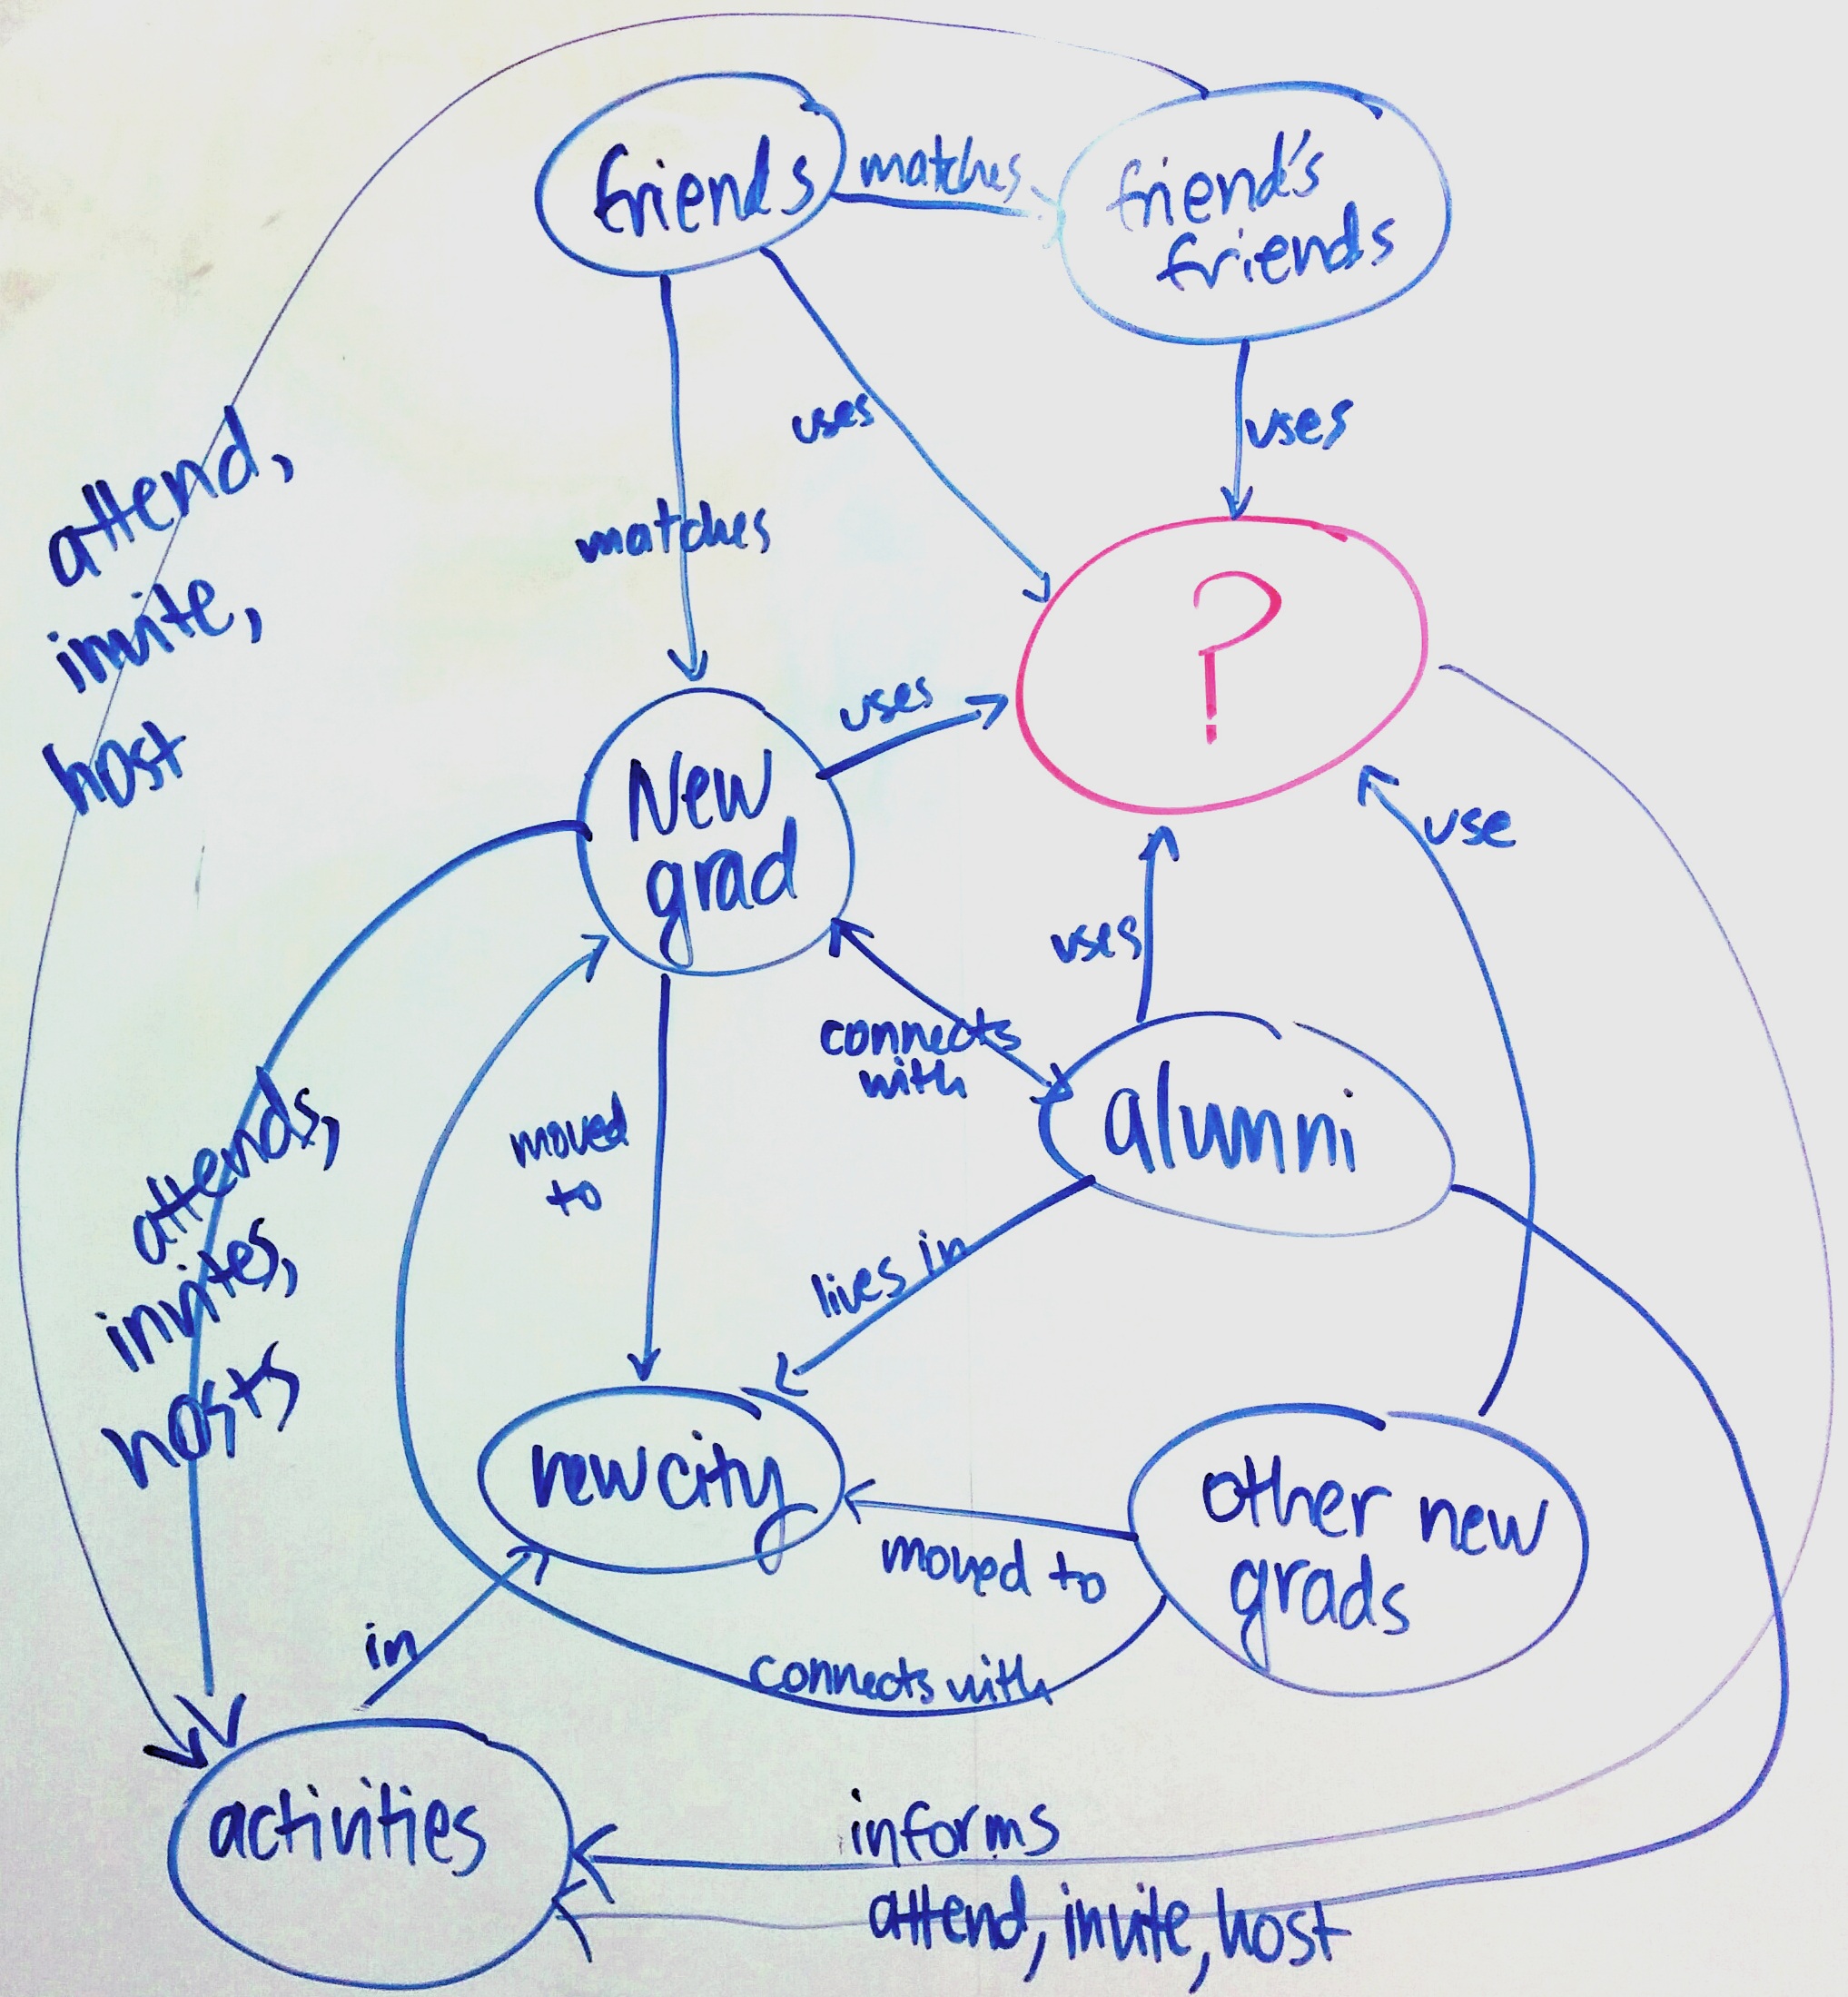 friends
matches
friend's
friends
uses
uses
attend,
invite,
host
matches
?
uses
New
grad
use
uses
connects
with
alumni
moved
to
attends,
invites,
hosts
lives in
new city
other new
grads
moved to
in
connects with
activities
informs
attend, invite, host